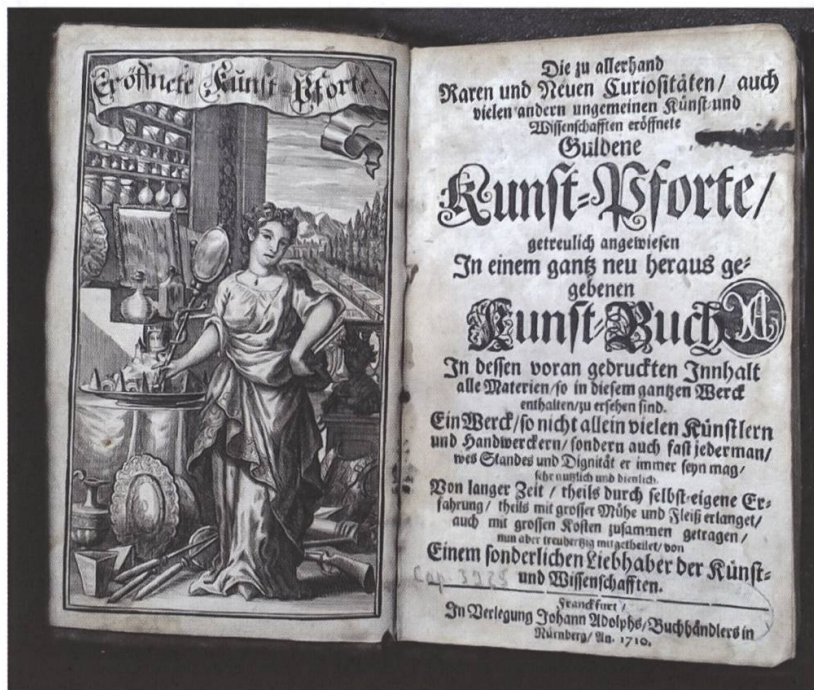 Eröffnete Kunst-Pforte.
Die zu allerhand
Raren und Neuen Curiositäten/ auch
vielen andern ungemeinen Künst-und
Wissenschafften eröffnete
Güldene
Kunst-Pforte/
getreulich angewiesen
In einem gantz neu heraus ge-
gebenen
Kunst-Buch
In dessen voran gedruckten Innhalt
alle Materien/so in diesem gantzen Werck
enthalten/zu ersehen sind.
Ein Werck/so nicht allein vielen Künstlern
und Handwerckern/ sondern auch fast jederman/
wes Standes und Dignität er immer seyn mag/
sehr nutzlich und dienlich.
Von langer Zeit / theils durch selbst-eigene Er-
fahrung/ theils mit grosser Mühe und Fleiß erlanget/
auch mit grossen Kosten zusammen getragen/
nun aber treuhertzig mitgetheilet/von
Einem sonderlichen Liebhaber der Künst-
und Wissenschafften.
Franckfurt/
In Verlegung Johann Adolphs/Buchhändlers in
Nürnberg/ An. 1710.